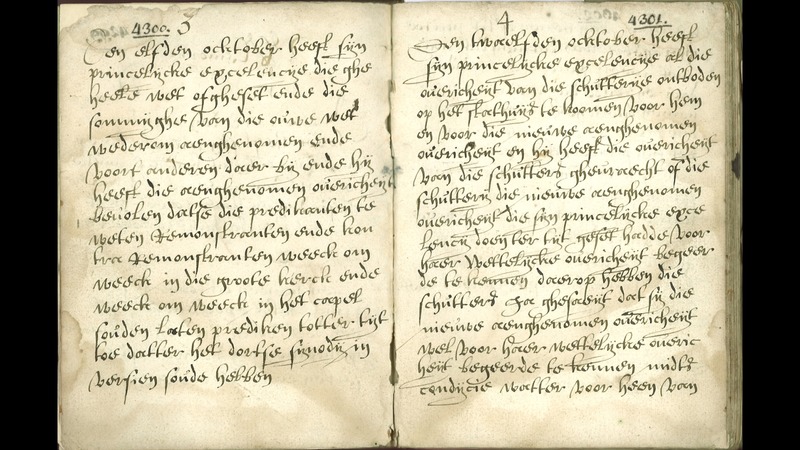 4300. 3
Den elfden ocktober heeft sijn
princelijcke excelencije die ghe
heele wet ofgheset ende die
sommighe van die ouwe wet
wederom aenghenomen ende
voort anderen daer bij ende hij
heeft die aenghenomen overicheijt
bevolen datse die predikanten te
weten Remonstranten ende kon
tra Remonstranten weeck om
weeck in die groote kerck ende
weeck om weeck in het capel
souden laten prediken totter tijt
toe datter het dortse sijnodij in
versien soude hebben
4 4301.
Den twaelfden ocktober heeft
sijn princelijcke excelencije al die
overicheijt van die schutterije ontboden
op het stathuijs te koomen voor hem
en voor die nieuwe aenghenomen
overicheijt en hij heeft die overicheijt
van die schutters ghevraecht of die
schutterij die nieuwe aenghenomen
overicheijt die sijn princelijcke exce
lencij doen ter tijt geset hadde voor
haer wettelijcke overicheijt begeer
de te kennen daerop hebben die
schutters Ja ghesaeijt dat sij die
nieuwe aenghenomen overicheijt
wel voor haer wettelijcke overic
heijt begeerde te kennen midts
condijcie watter voor heen van